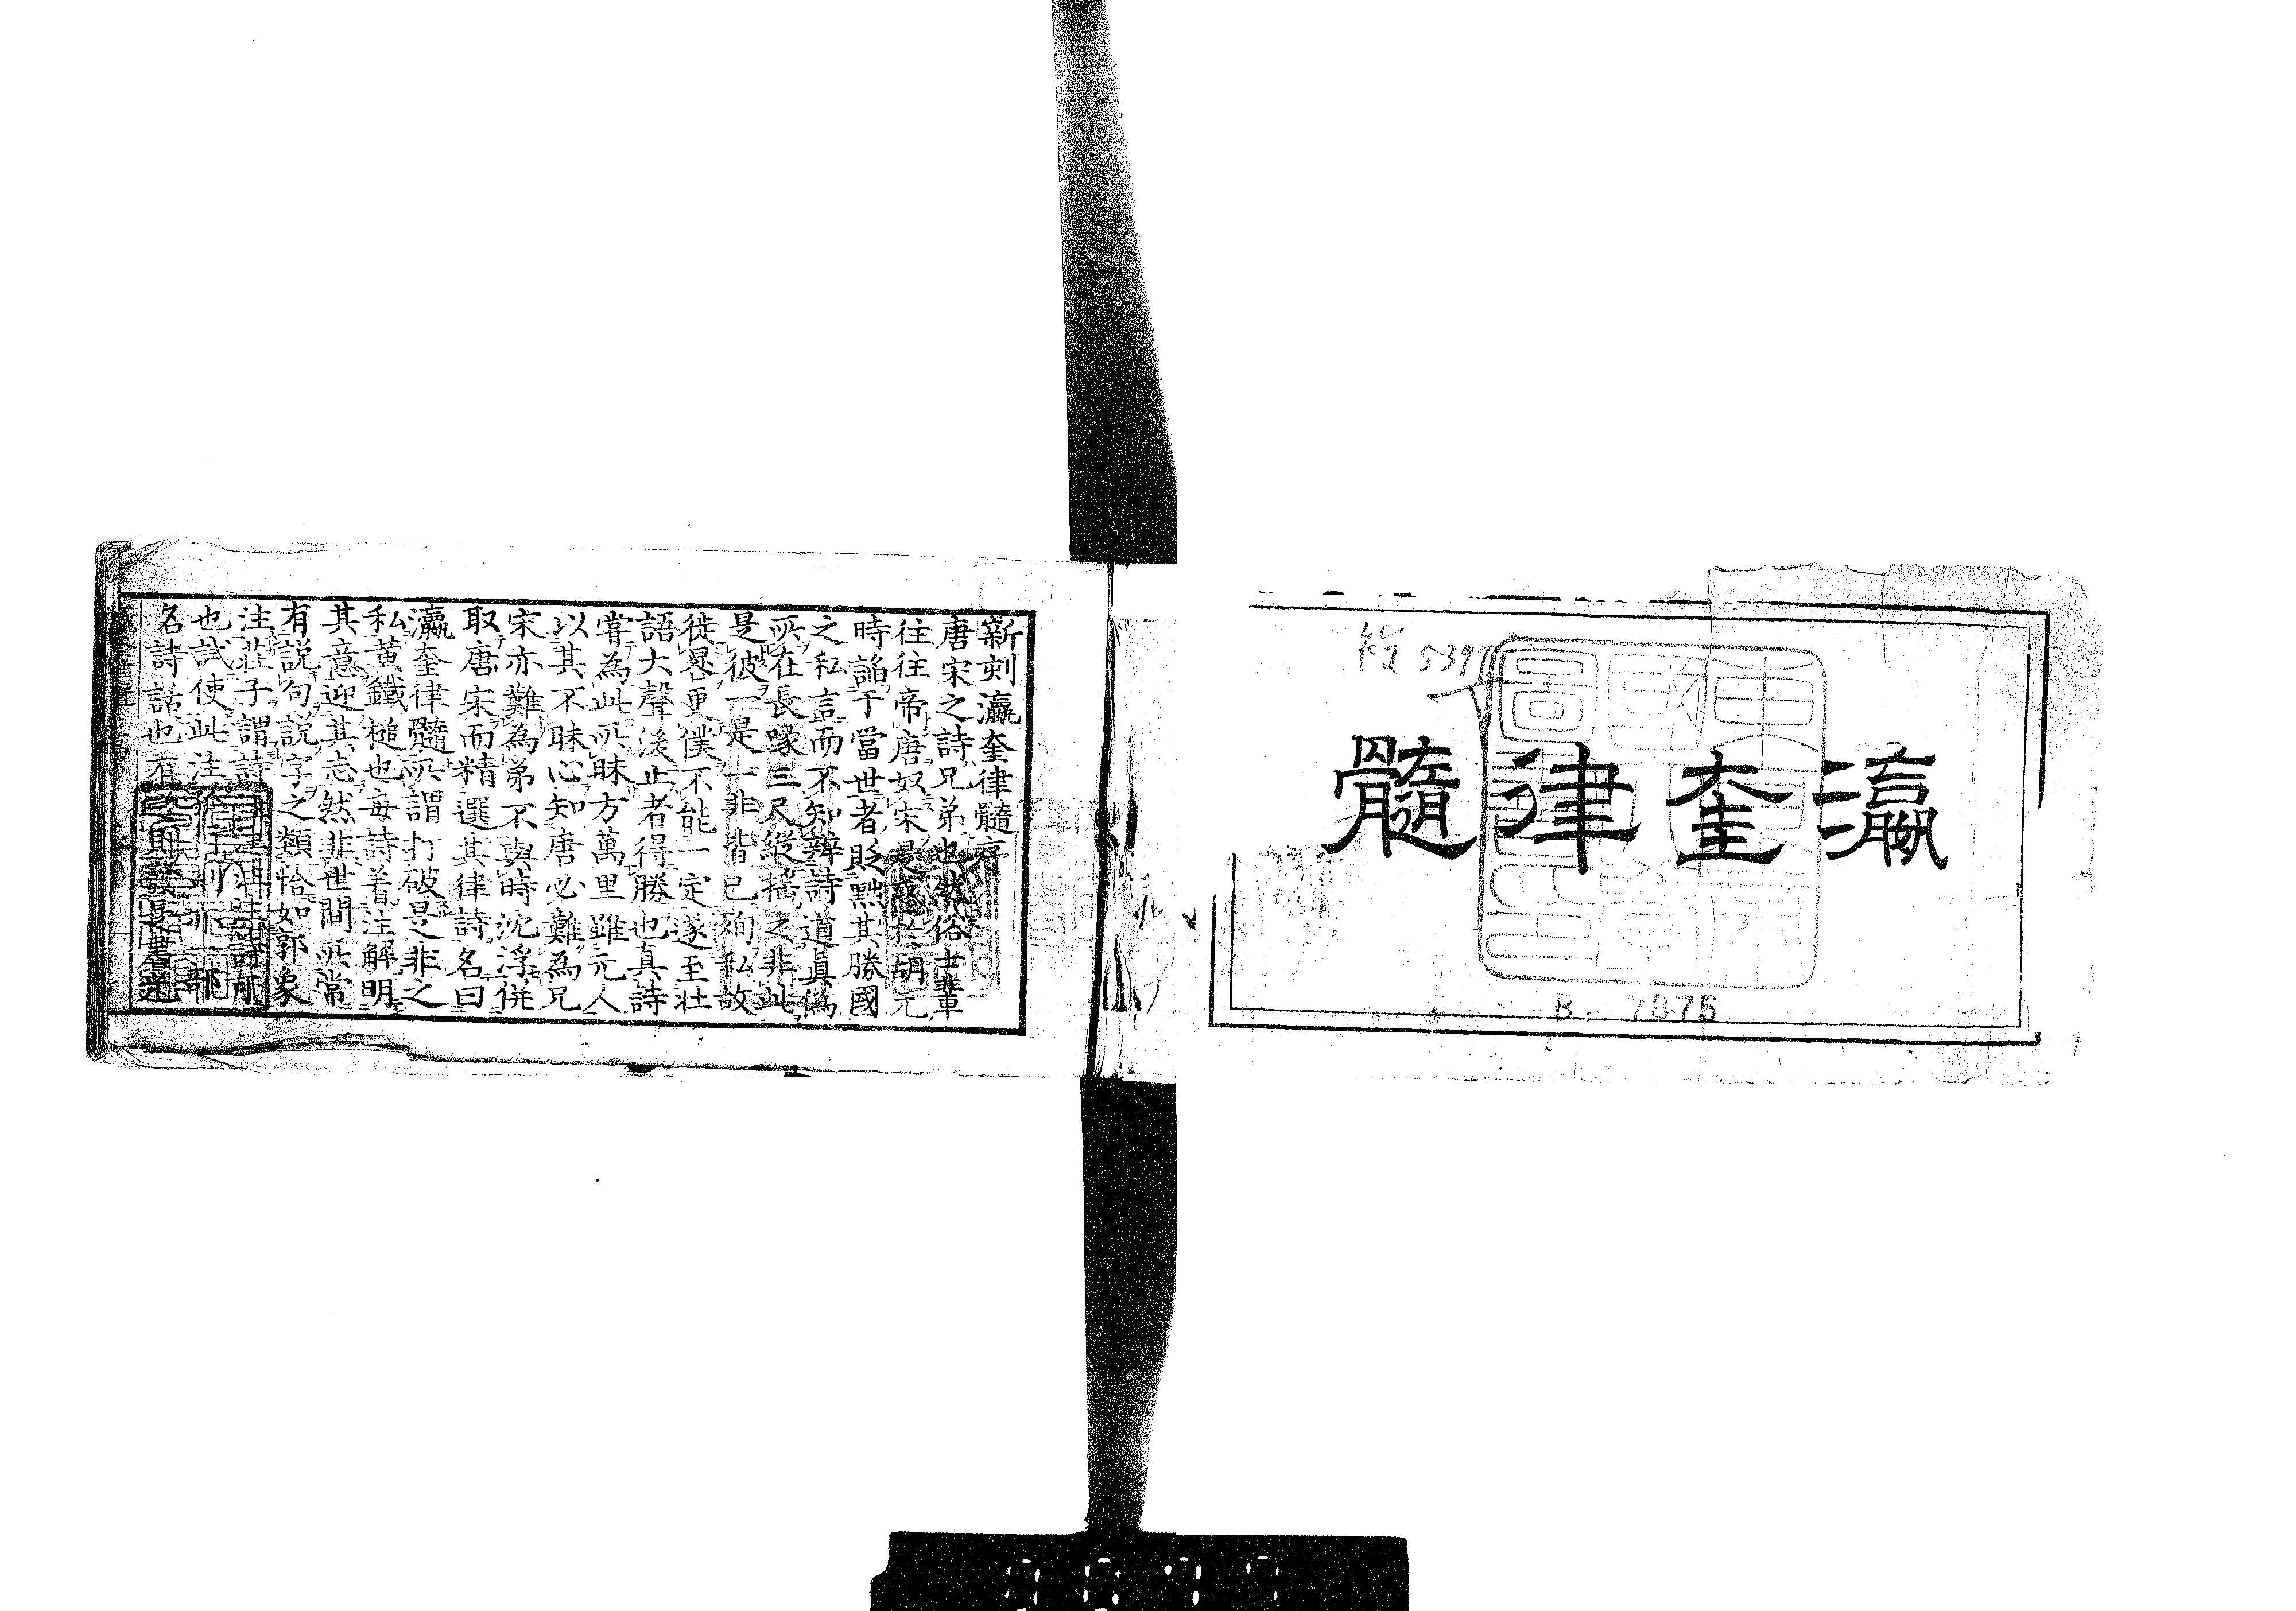 瀛奎律髓
B 7875
新刻瀛奎律髓序
唐宋之詩兄弟也然俗士輩
往往帝唐奴宋是惑於胡元
時諂于當世者貶黜其勝國
之私言而不知辨詩道眞偽
所在長喙三尺縱搖之非此
是彼一是一非皆已殉私故
徙晷更僕不能一定遂至壯
語大聲後止者得勝也真詩
嘗為此所昧方萬里雖元人
以其不昧心知唐必難為兄
宋亦難為弟不與時沈浮併
取唐宋而精選其律詩名曰
瀛奎律髓所謂打破是非之
私黃鐵槌也每詩着注解明
其意迎其志然非世間所常
有説句説字之類恰如郭象
注莊子謂詩注
也試使此注亦一部
名詩話也有